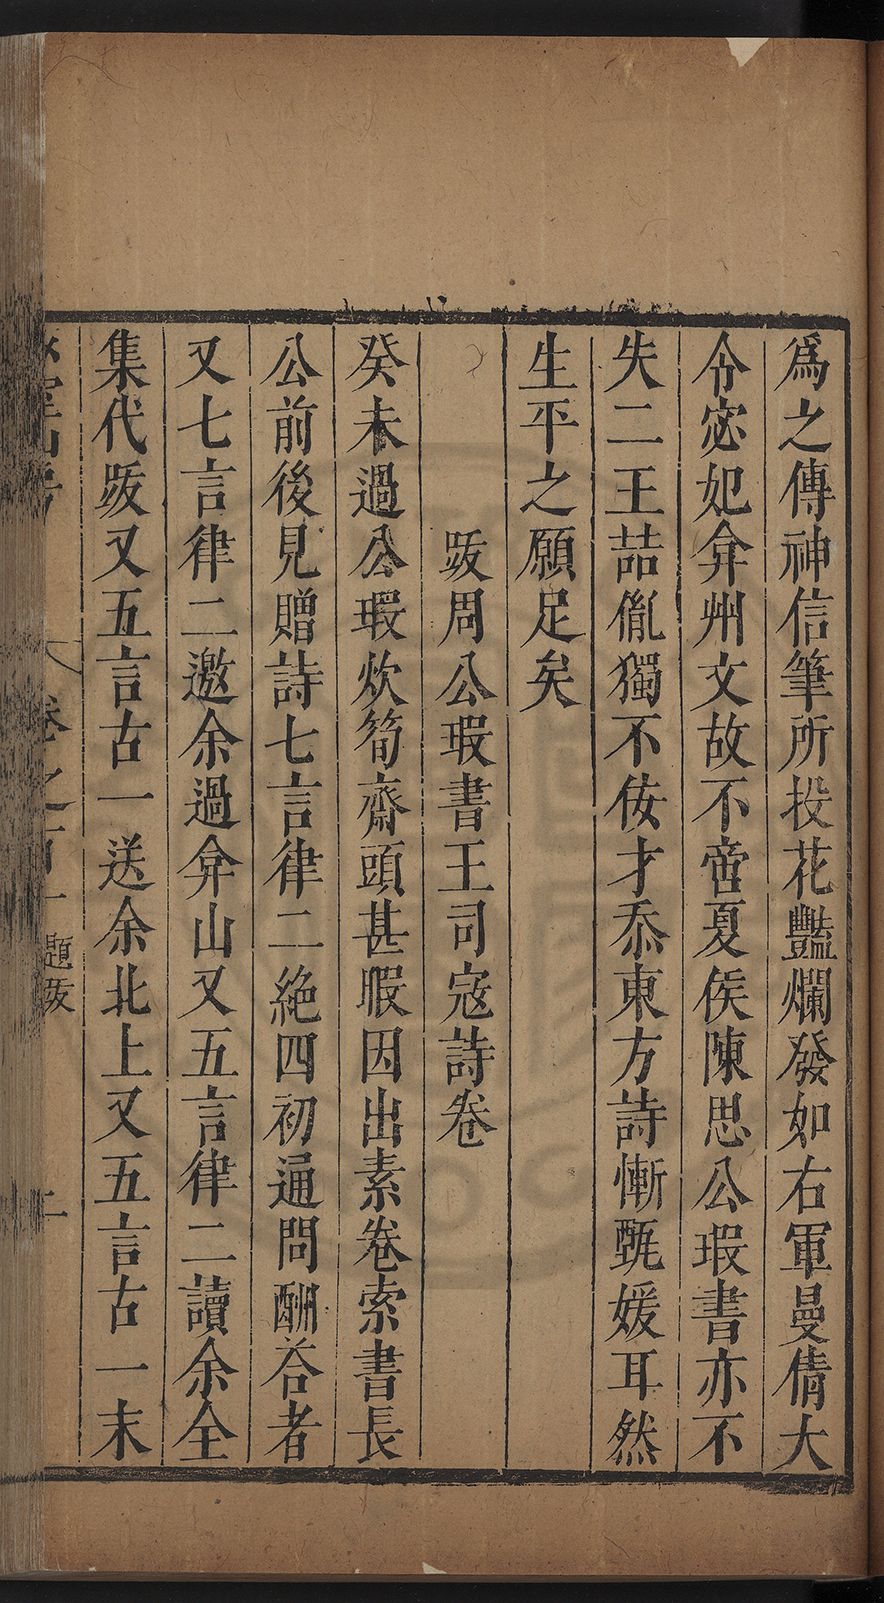 爲之傳神信筆所投花豔爛發如右軍曼倩大
令宓妃弇州文故不啻夏侯陳思公瑕書亦不
失二王喆胤獨不佞才忝東方詩慚甄媛耳然
生平之願足矣
跋周公瑕書王司寇詩卷
癸未過公瑕炊筍齋頭甚暇因出素卷索書長
公前後見贈詩七言律二絶四初通問酬荅者
又七言律二邀余過弇山又五言律二讀余全
集代跋又五言古一送余北上又五言古一末
卷之百一 題跋 二